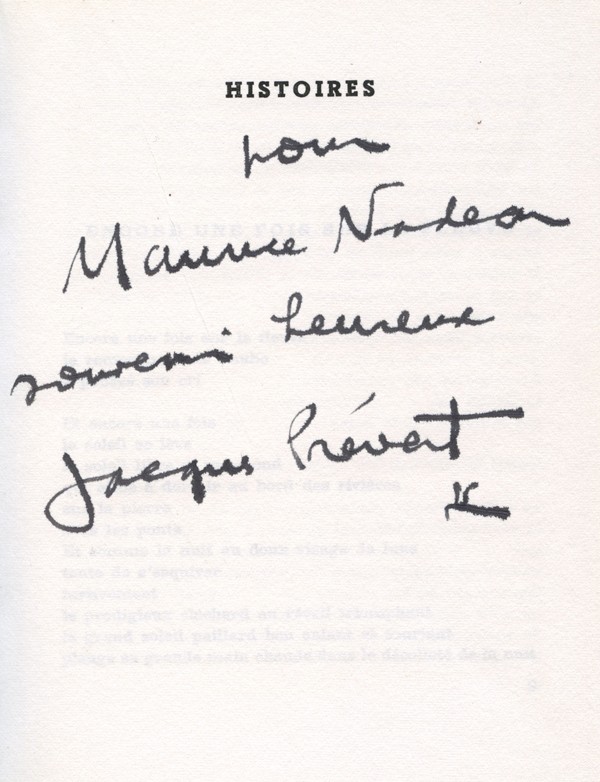 HISTOIRES
pour
Maurice Nadeau
souvenir heureux
Jacques Prévert
ENCORE UNE FOIS
Encore une fois sur le
son cri
Et encore une fois
le soleil se lève
le soleil
à dormir au bord des rivières
sur la pierre
sous les ponts
Et comme la nuit au doux visage de lune
tente de s'esquiver
furtivement
le prodigieux clochard au réveil triomphant
le grand soleil paillard bon enfant et souriant
plonge sa grande main chaude dans le décolleté de la nuit
9